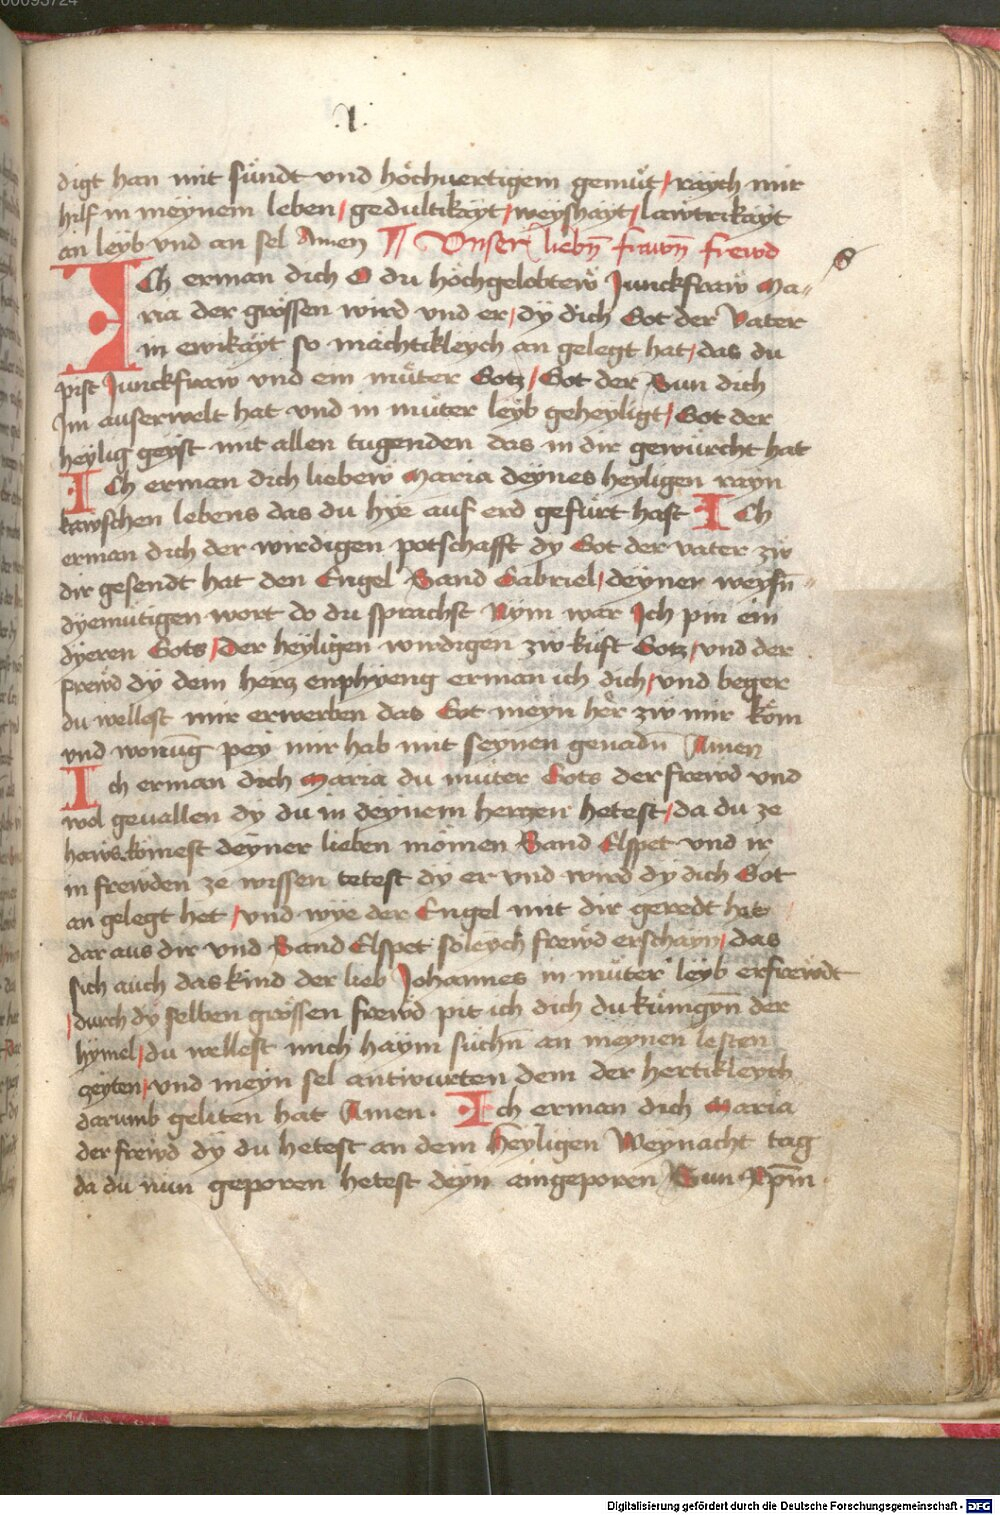 .1.
digt han mit sündt vnd höchuertigem gemüt / raych mir
hilf in meynem leben / gedultikäyt / weyshäyt / lawtrikäyt
an leyb vnd an sel Amen ¶ Vnser liebn̄ frawn̄ frewd
ICh erman dich O du höchgelobtew Junckfraw Ma⸗
ria der grössen wird vnd er / dy dich Got der Vater
in ewikäyt so mächtikleych an gelegt hat / das du
pist Junckfraw vnd ein müter Gotz / Got der Sun dich
Im auserwelt hat vnd in müter leyb geheyligt / Got der
heylig geyst mit allen tugenden das in dir gewürcht hat
ICh erman dich liebew Maria deynes heyligen rayn
kawschen lebens das du hye auf erd gefürt hast ICh
erman dich der wirdigen potschafft dy Got der vater zw
dir gesendt hat den Engel Sand Gabriel / deyner
dyemütigen wort do du sprachst Nym war Ich pin ein
dyeren Gots / Der heyligen wirdigen zw kűft Gotz / vnd der
frewd dy dem herz enphyeng erman ich dich / vnd beger
du wellest mir erwerben das Got meyn her zw mir kom
vnd wonūg pey mir hab mit seynen genadn̄ Amen
Ich erman dich Maria du müter Gots der frewd vnd
wol geuallen dy du in deynem herzen hetest / da du ze
haws komest deyner lieben mömen Sand Elspet vnd ir
in frewden ze wissen tetest dy er vnd wird dy dich Got
an gelegt het / vnd wye der Engel mit dir geredt hat
dar aus dir vnd Sand Elspet soleych frewd erschayn / das
sich auch das kind der lieb Johannes in müter leyb erfrewdt
/ durch dy selben grössen frewd pit ich dich du künigyn̄ der
hymel / du wellest mich häym süchn̄ an meynen lesten
zeyten / vnd meyn sel antwurten dem der hertikleych
darumb geliten hat Amen . Ich erman dich Maria
der frewd dy du hetest an dem heyligen Weynacht tag
da du nün geporen hetest deyn aingeporen Sun Xp̄m .
Digitalisierung gefördert durch die Deutsche Forschungsgemeinschaft - DFG